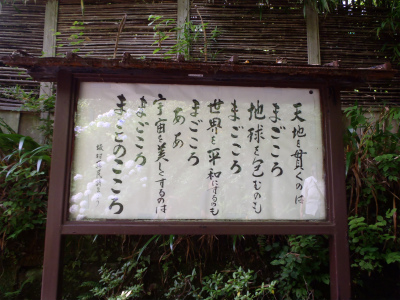 天地を貫くのは
まごころ
地球を包むのも
まごころ
世界を平和にするのも
まごころ
ああ
宇宙を美しくするのは
まごころ
まことのこころ